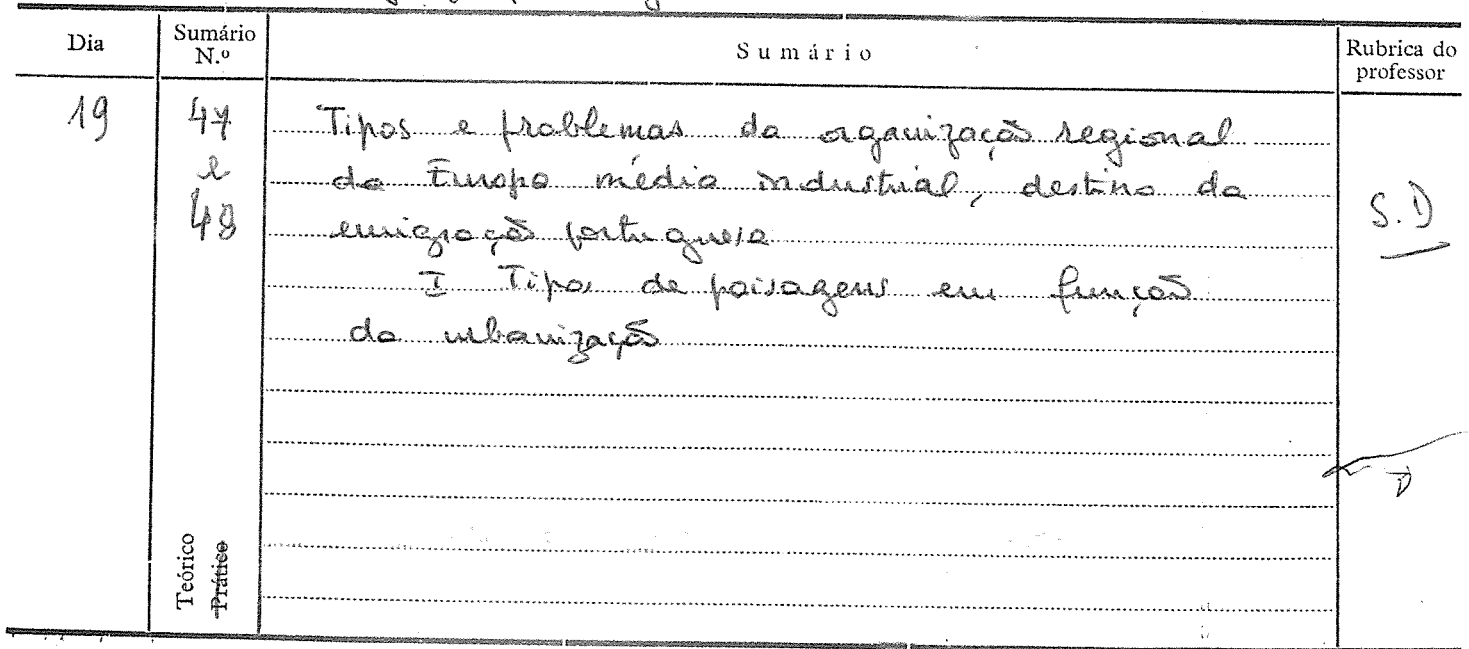 Dia
Sumário N.º
Sumário
Rubrica do professor
19
47 e 48
Tipos e problemas da organização regional
da Europa média industrial, destino da
emigração portuguesa
I Tipos de paisagens em função
da urbanização
S.D
Teórico
Prático